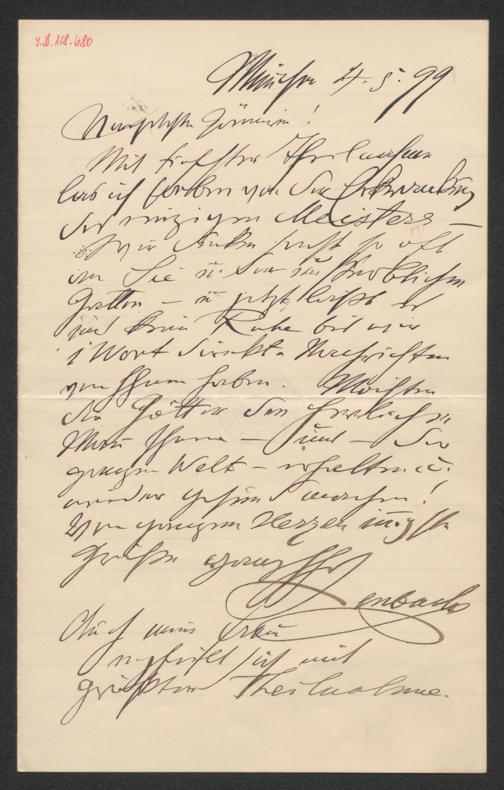 I.N. 118.680
München 4.5.99
Verehrteste Gönnerin!
Mit tiefster Theilnahme
las ich soeben von der Erkrankung
des einzigen Meisters –
Wir denken sonst so oft
an Sie u. den unsterblichen
Gatten – u jetzt läßt es
uns keine Ruhe bis wir
1 Wort direkte Nachrichten
von Ihnen haben. Möchten
die Götter den herrlichsten
Mann Ihnen – uns – der
ganzen Welt – erhalten u.
wieder gesund machen!
Von ganzem Herzen innigste
Grüße Ganz Ihr
Lenbach
Auch meine Frau
empfiehlt sich mit
größter Theilnahme.